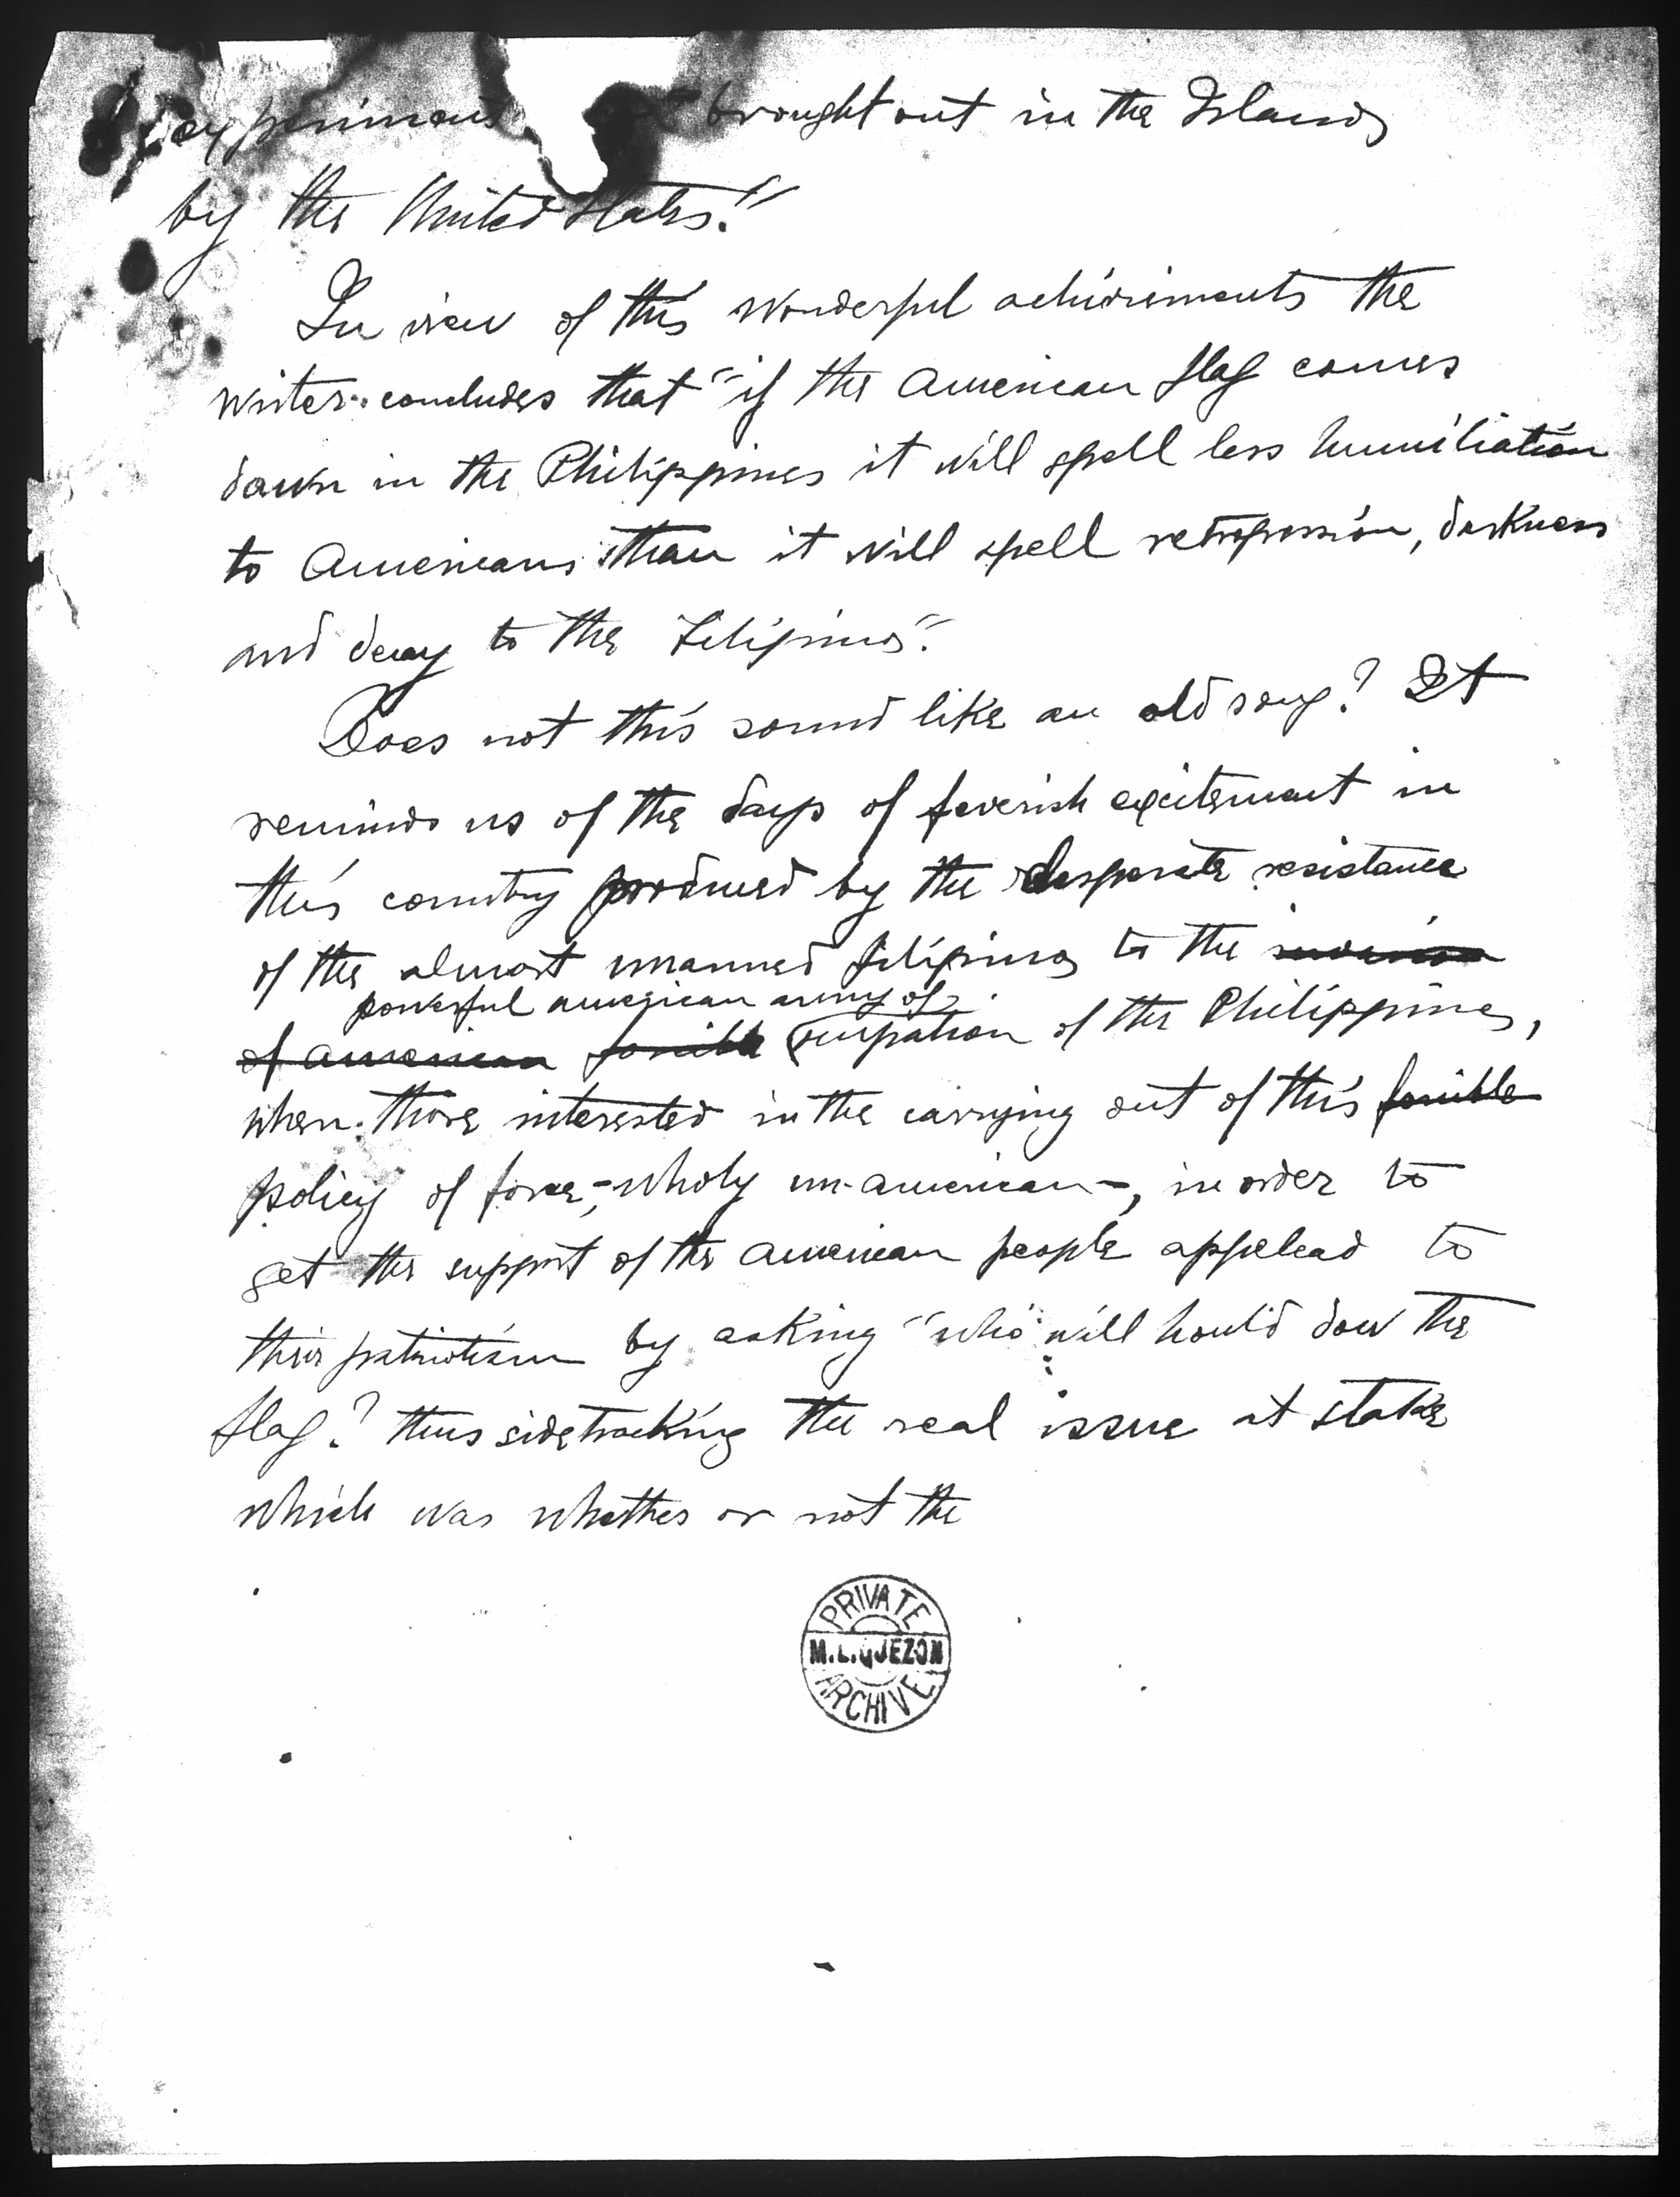 experiment brought out in the Islands
by the United States."
In view of this wonderful achivements the
writer concludes that "if the American flag comes
down in the Philippines it will spell less humiliation
to Americans than it will spell retrogression, darkness
and decay to the Filipinos".
Does not this sound like an old song? It
reminds us of the days of feverish excitement in
this country produced by the desperate resistance
of the almost unarmed Filipinos to the invasion
powerful american army of
of american forcible occupation of the Philippines,
when those interested in the carrying out of this forcible
policy of force,-wholy un-american-, in order to
get the support of the American people appelead to
their patriotism by asking "who will hould dow the
flag? thus sidetracking the real issue at stake
which was whether or not the
PRIVATE
M.L.QUEZON
ARCHIVE